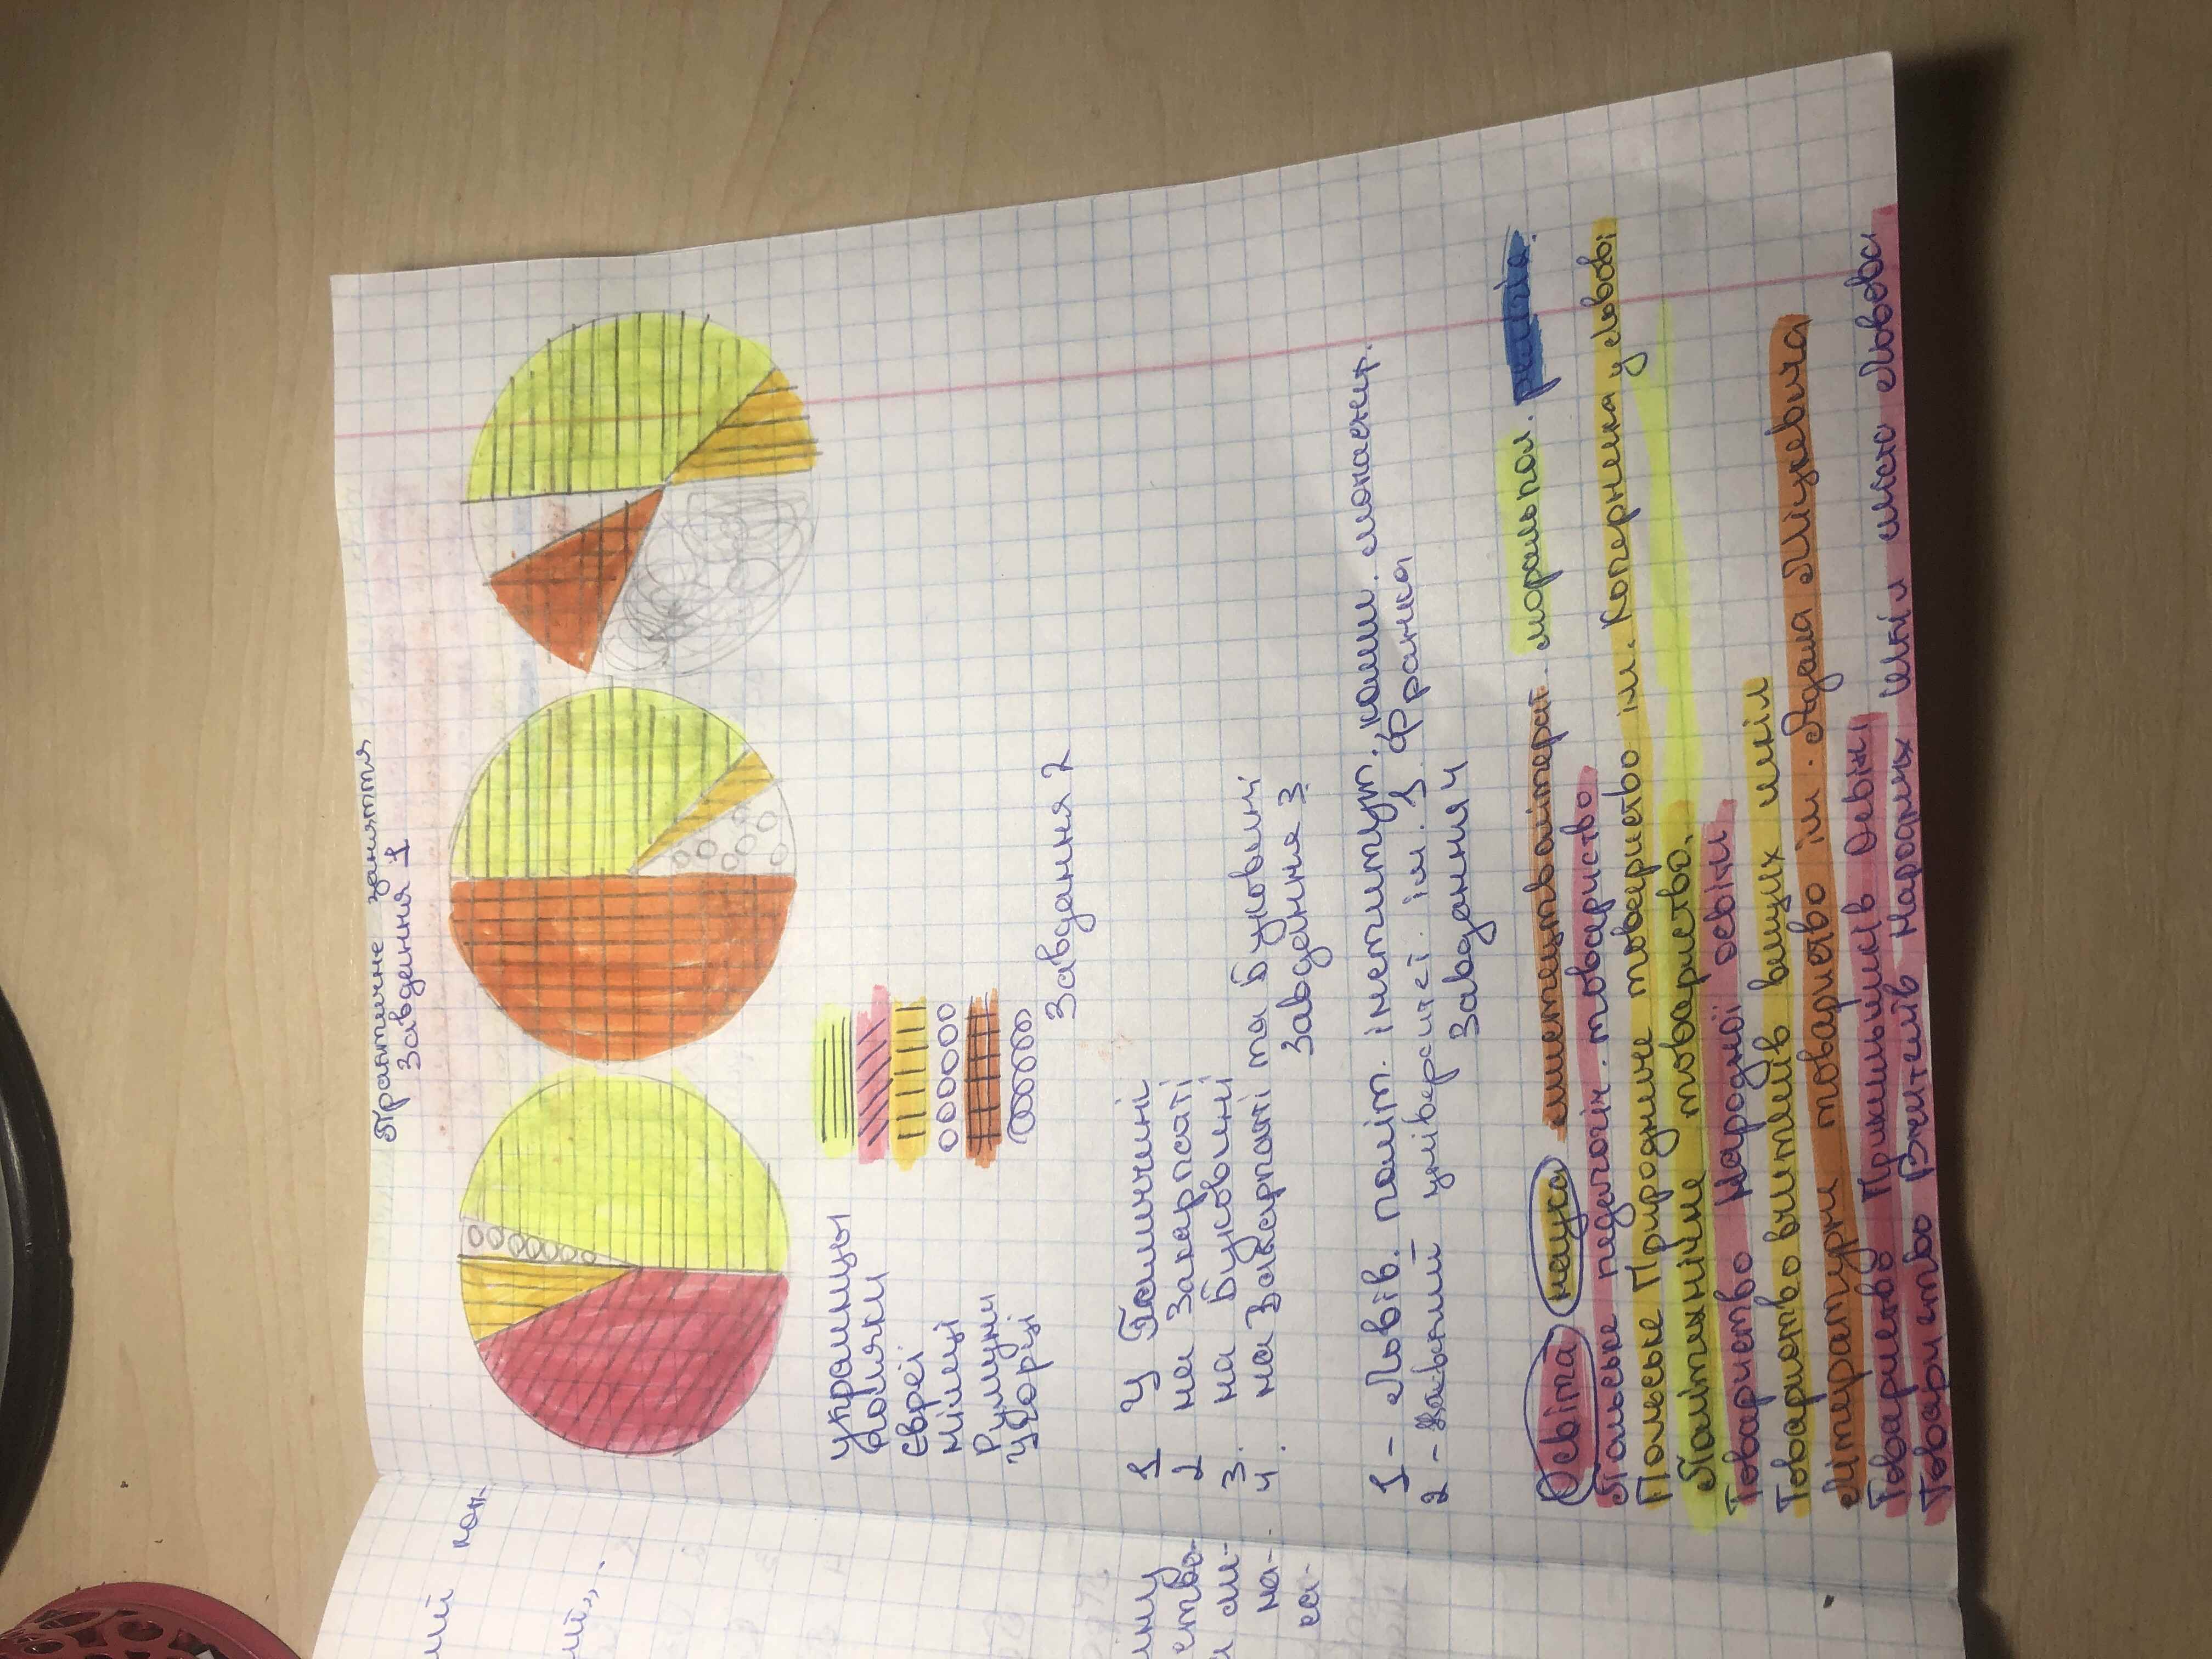 Практичне заняття
Завдення 1
украинцы
Поляки
євреї
німеці
Румуни
Угорці
Завдання 2
1 У Галиччині
2 на Закарпаті
3. на Буковині
4. на Закарпаті та Буковині
Завдення 3
1 - Львів. політ. інститут;
2 - університет. ім. І. Франка
Завдання 4
Освіта наука мистецтво літерат. моральпол. релігія.
Польське педагогіч. товариство.
Польське Природниче товариство ім. Коперника у Львові
Політехнічне товариство.
Товариство Народної освіти
Товариство вчителів вищих шкіл
Літературн товариство ім. Адама Міцкевича
Товариство Прихильників Освіти
Товариство Вчителів Народних Шкіл міста Львова
кон-
ство-
на-